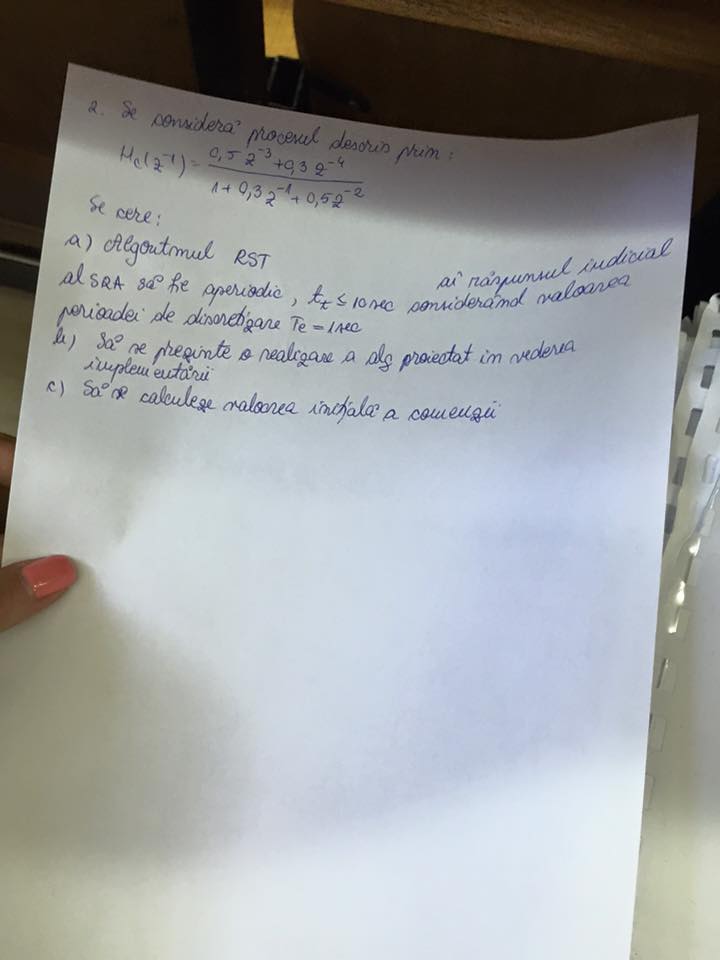 2. Se consideră procesul descris prim :
Hc(z⁻¹) = 0,5 z⁻³ + 0,3 z⁻⁴ / 1 + 0,3 z⁻¹ + 0,5 z⁻²
Se cere :
a) Algoritmul RST
aî răspunsul indicial
al SRA să fie aperiodic, tt ≤ 10 sec considerând valoarea
perioadei de discretizare Te = 1 sec
b) Să se prezinte o realizare a alg proiectat în vederea
implementării
c) Să se calculeze valoarea inițială a comenzii